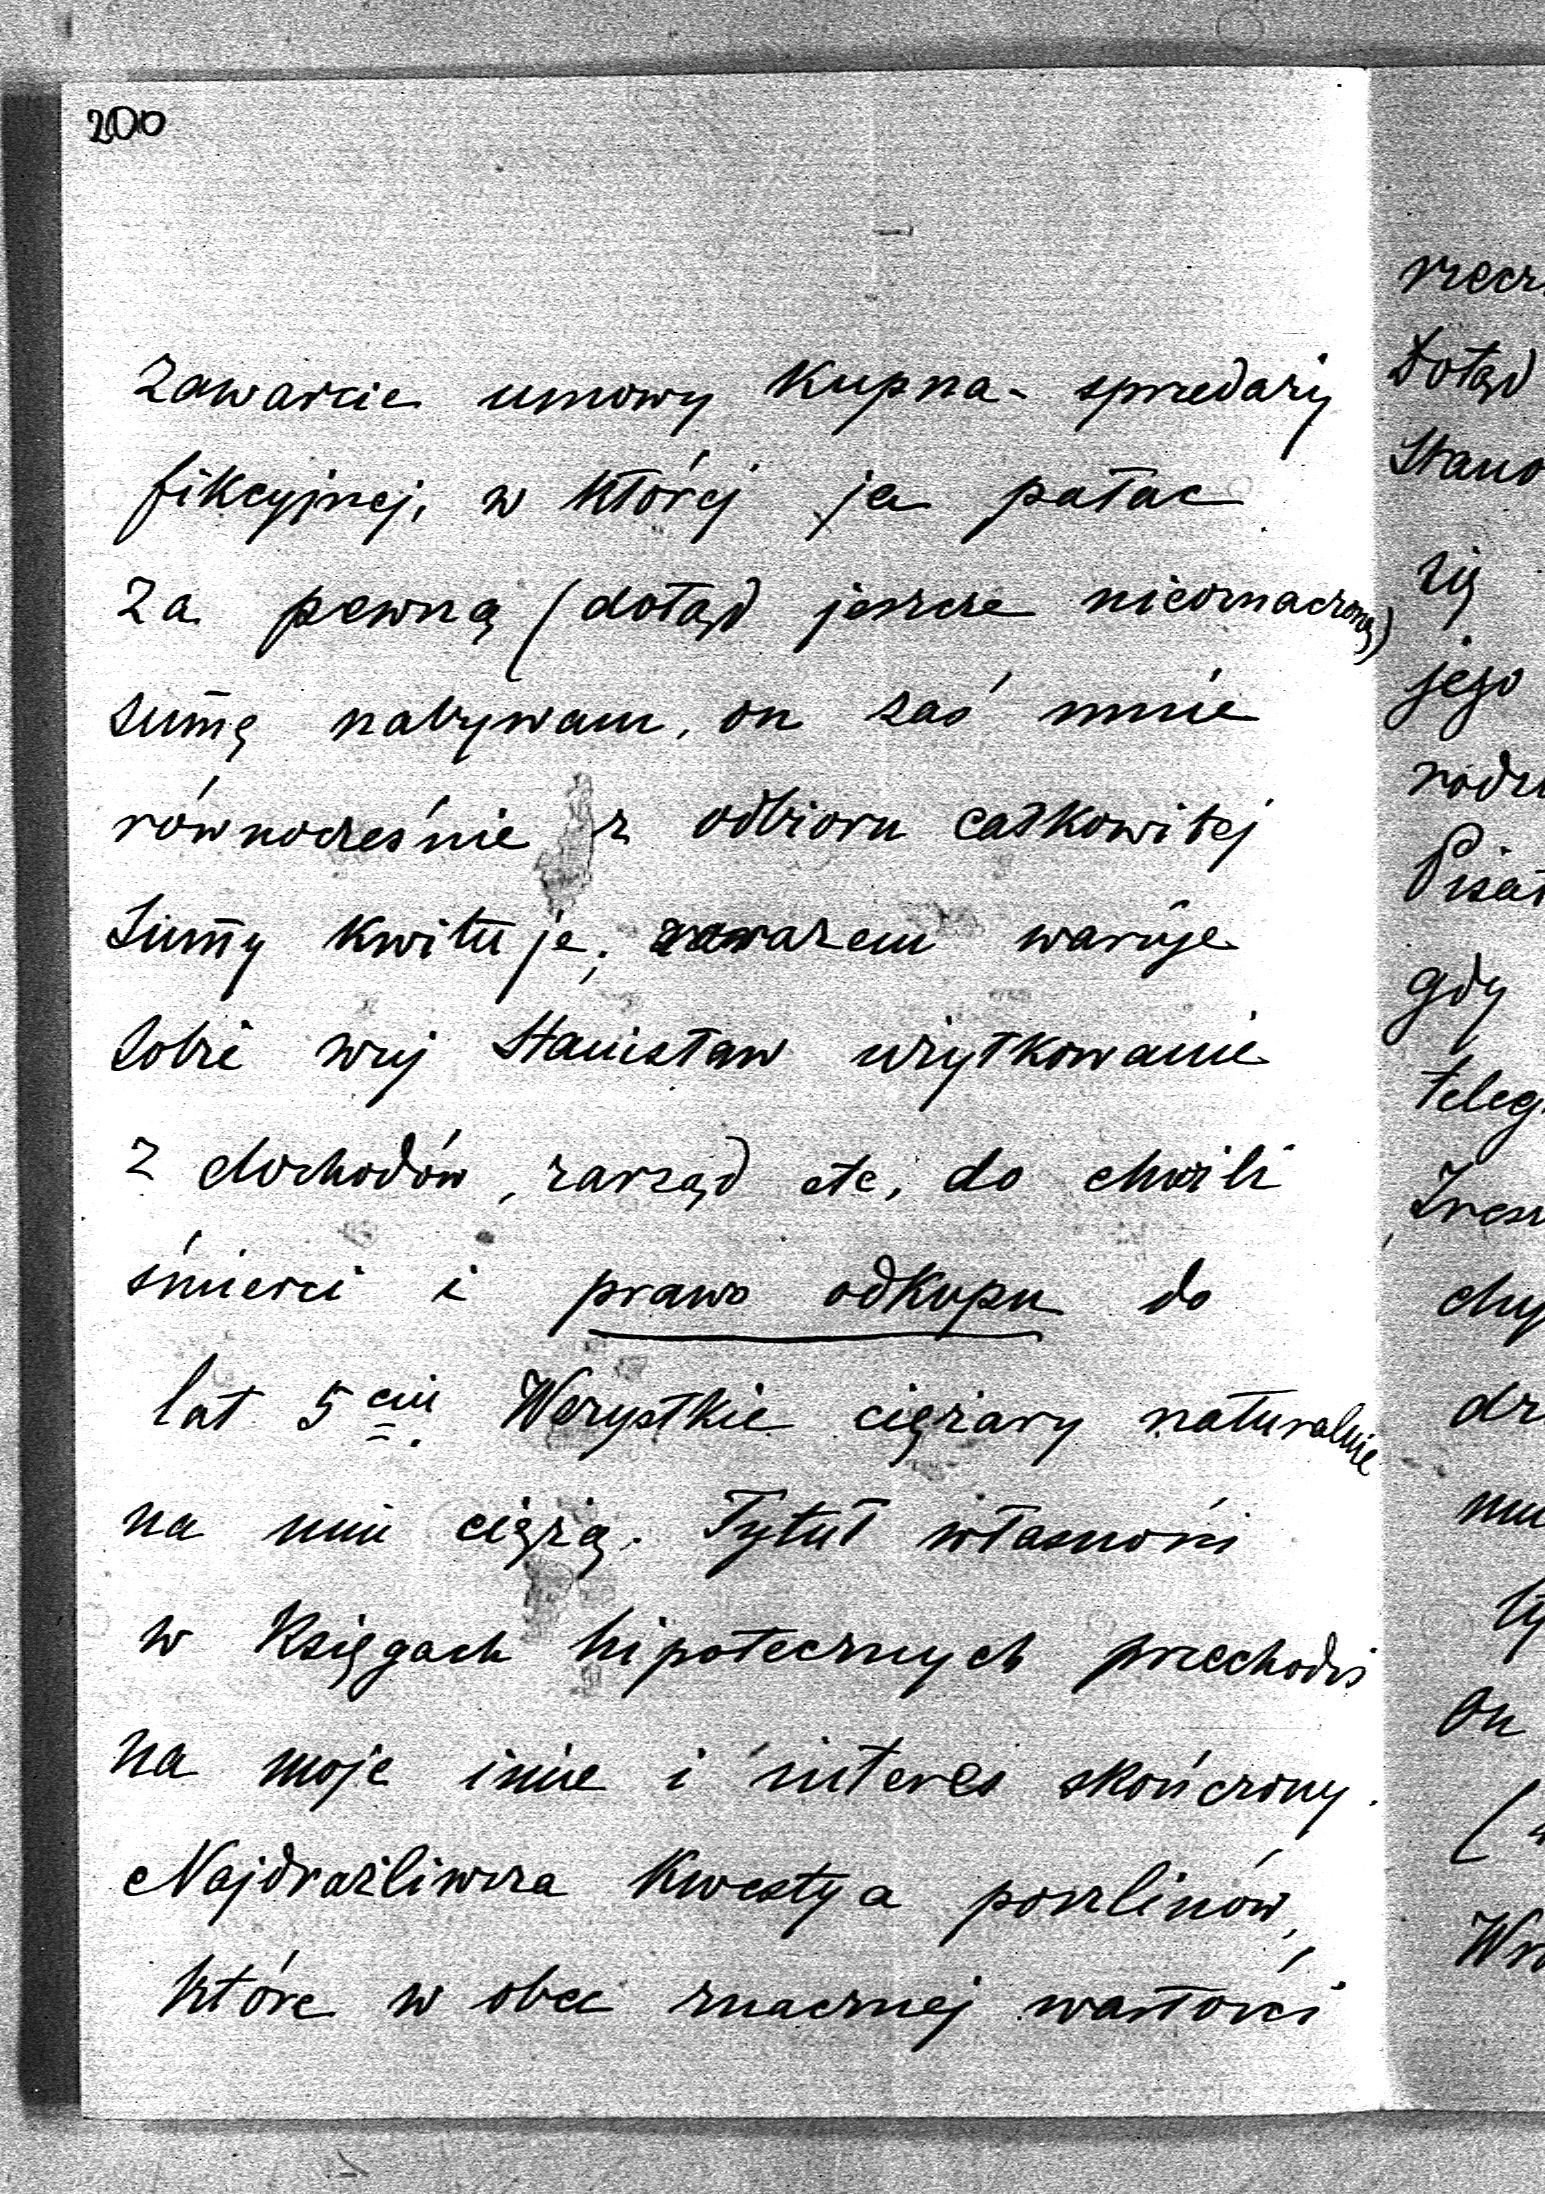 200
zawarcie umowy kupna-sprzedaży
fikcyjnej, w której ja pałac
za pewną (dotąd jeszcze nieoznaczoną)
sumę nabywam, on zaś mnie
równocześnie z odbioru całkowitej
sumy kwituje, zarazem waruje
sobie wuj Stanisław użytkowanie
z dochodów, zarząd etc, do chwili
śmierci i prawo odkupu do
lat 5ciu. Wszystkie ciężary naturalnie
na mnie ciężą. Tytuł własności
w księgach hipotecznych przechodzi
na moje imie i interes skończony.
Najdrażliwsza kwestya porzlinów,
które w obec znacznej wartości
Dotąd
się
jego
gdy
On